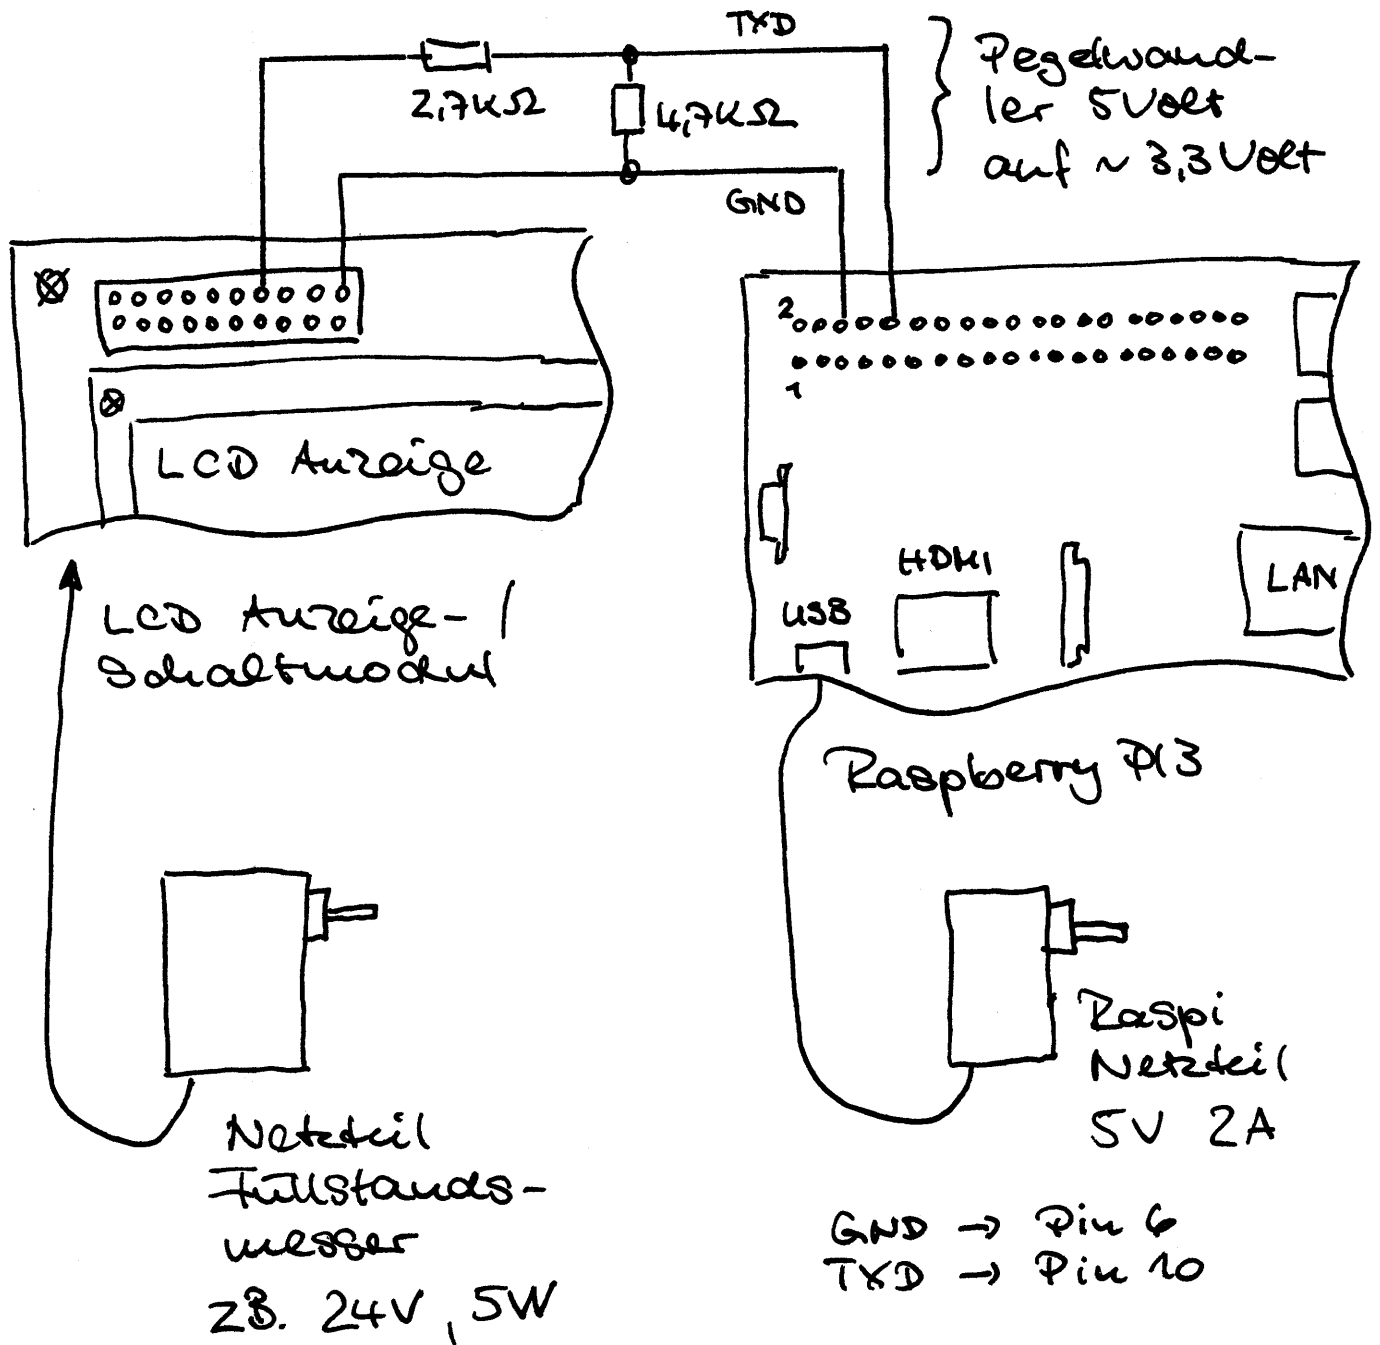 TXD
2,7KΩ
4,7KΩ
GND
Pegelwand-
ler 5Volt
auf ~ 3,3Volt
2
1
LCD Anzeige
HDMI
USB
LAN
LCD Anzeige- /
Schaltmodul
Raspberry PI3
Raspi
Netzteil
5V 2A
Netzteil
Füllstands-
messer
zB. 24V, 5W
GND → Pin 6
TXD → Pin 10